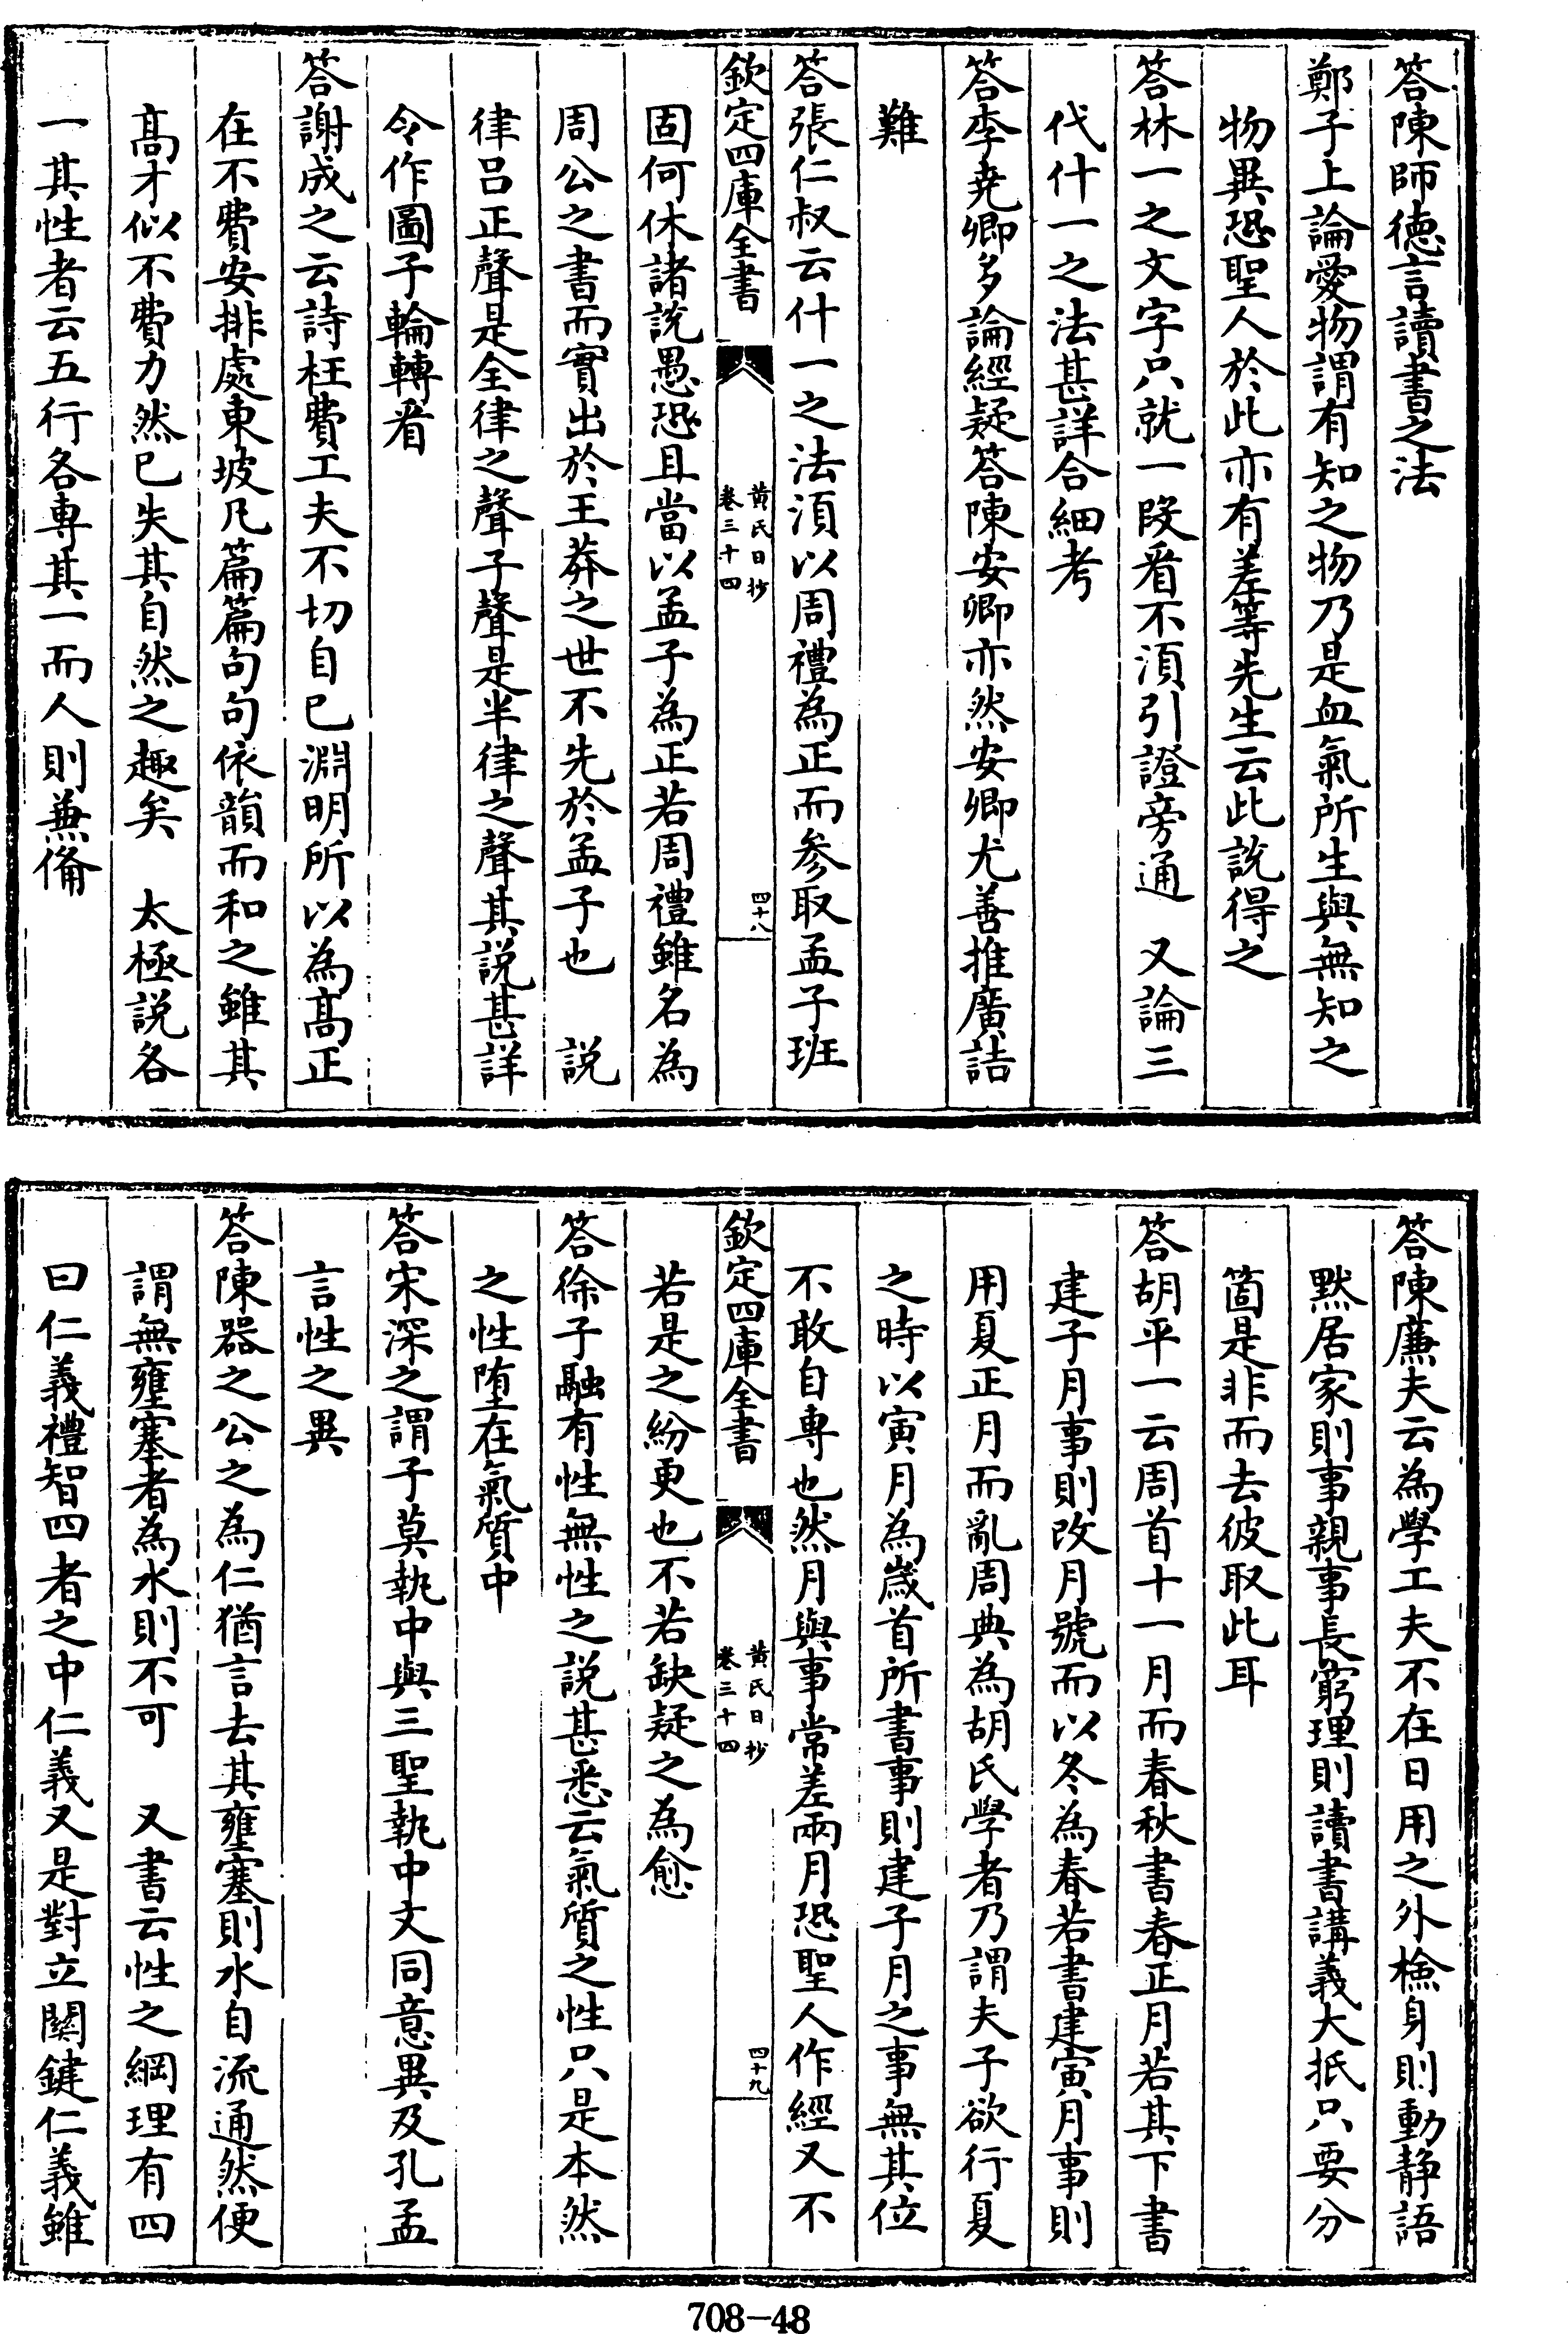 答陳師徳言讀書之法
鄭子上論愛物謂有知之物乃是血氣所生與無知之
物異恐聖人於此亦有差等先生云此說得之
答林一之文字只就一段㸔不須引證旁通　又論三
代什一之法甚詳合細考
答李堯卿多論經疑答陳安卿亦然安卿尤善推廣詰
難
答張仁叔云什一之法須以周禮為正而參取孟子班
欽定四庫全書
黃氏日抄
卷三十四
四十八
固何休諸說愚恐且當以孟子為正若周禮雖名為
周公之書而實出於王莽之世不先於孟子也　說
律呂正聲是全律之聲子聲是半律之聲其說甚詳
令作圖子輪轉㸔
答謝成之云詩枉費工夫不切自已淵明所以為髙正
在不費安排處東坡凡篇篇句句依韻而和之雖其
髙才似不費力然已失其自然之趣矣　太極說各
一其性者云五行各専其一而人則兼備
答陳廉夫云為學工夫不在日用之外檢身則動靜語
黙居家則事親事長窮理則讀書講義大抵只要分
箇是非而去彼取此耳
答胡平一云周首十一月而春秋書春正月若其下書
建子月事則改月號而以冬為春若書建寅月事則
用夏正月而亂周典為胡氏學者乃謂夫子欲行夏
之時以寅月為歲首所書事則建子月之事無其位
不敢自専也然月與事常差兩月恐聖人作經又不
欽定四庫全書
黃氏日抄
卷三十四
四十九
若是之紛更也不若缺疑之為愈
答徐子融有性無性之說甚悉云氣質之性只是本然
之性堕在氣質中
答宋深之謂子莫執中與三聖執中文同意異及孔孟
言性之異
答陳器之公之為仁猶言去其壅塞則水自流通然便
謂無壅塞者為水則不可　又書云性之綱理有四
曰仁義禮智四者之中仁義又是對立闗鍵仁義雖
708-48